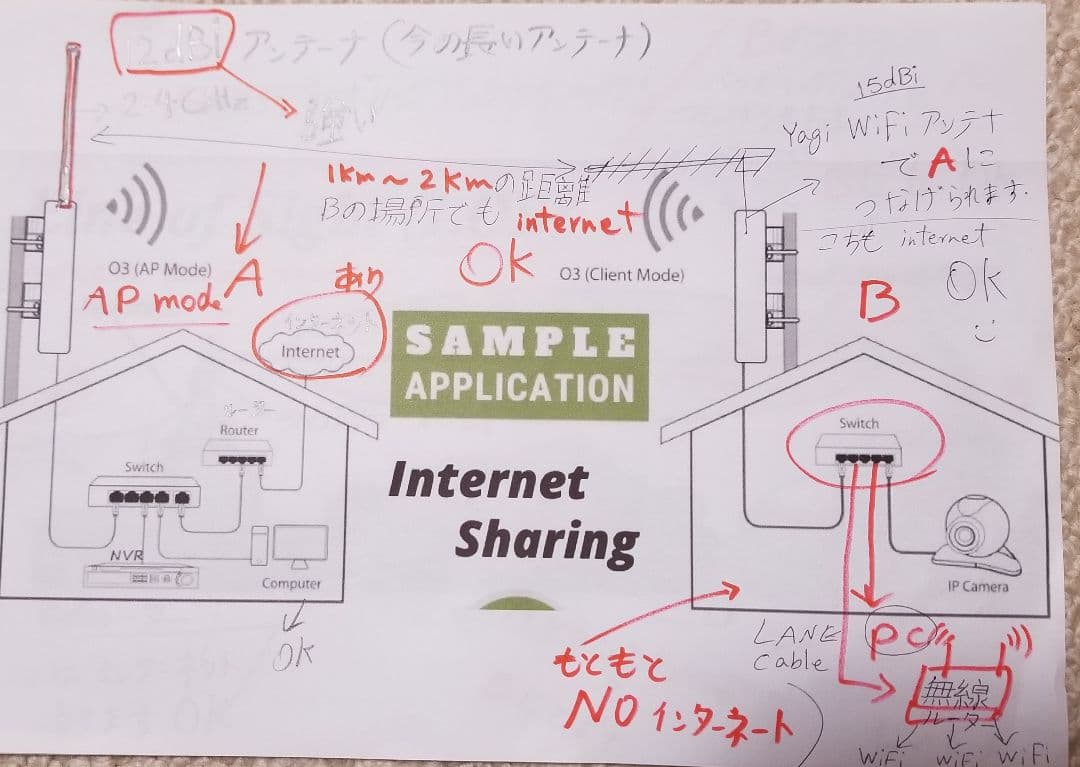 12dBi アンテーナ (今の長いアンテーナ)
2.4GHz
強い
15dBi
Yagi WiFi アンテナ
でAに
つなげられます.
こちも internet
OK
1km~2kmの距離
Bの場所でも internet
OK
O3 (AP Mode)
AP mode
A
あり
インターネット
Internet
O3 (Client Mode)
B
SAMPLE
APPLICATION
Internet
Sharing
ルーター
Router
Switch
NVR
Computer
OK
Switch
IP Camera
もともと
NO インターネート
LANE
cable
PC
無線
ルーター
WiFi WiFi WiFi